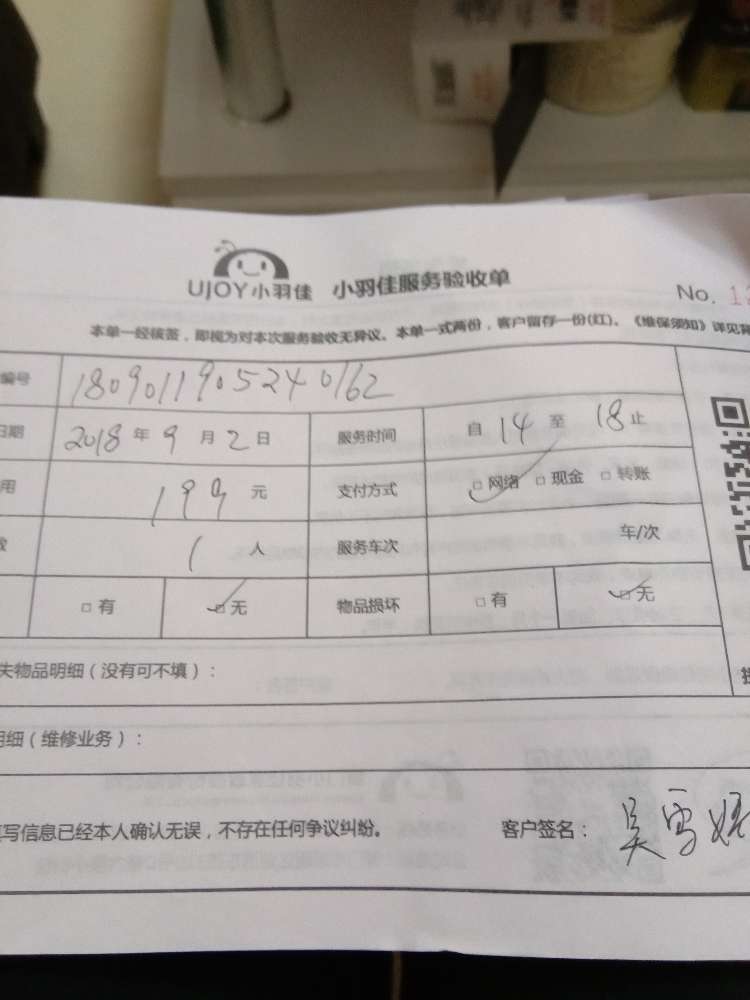 UJOY小羽佳 小羽佳服务验收单
No. 1
本单一经核签，即视为对本次服务验收无异议。本单一式两份，客户留存一份(红)。《维保须知》详见背
编号 1809011905240162
日期 2018年9月2日 服务时间 自14至18止
用 199元 支付方式 □网络 □现金 □转账
数 1人 服务车次 车/次
□有 □无 物品损坏 □有 □无
失物品明细（没有可不填）：
明细（维修业务）：
写信息已经本人确认无误，不存在任何争议纠纷。 客户签名：吴雪